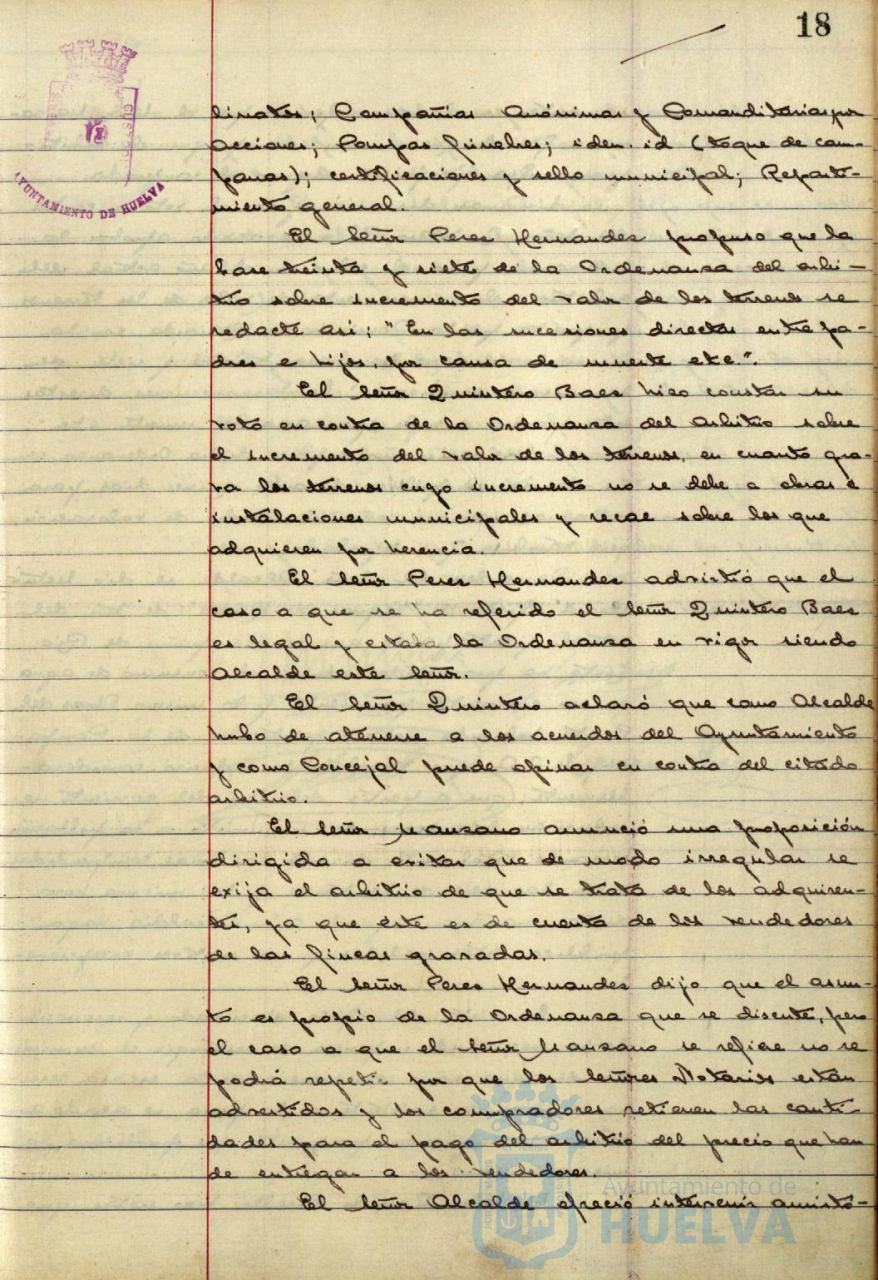 18
CUSTODI
AYUNTAMIENTO DE HUELVA
linatos; Compañías Anónimas y Comanditarias por
acciones; Pompas fúnebres; iden. id (toque de cam-
panas); certificaciones y sello municipal; Reparti-
miento general.
El señor Peres Hernandes propuso que la
base treinta y siete de la Ordenansa del arbi-
trio sobre incremento del valor de los terrenos se
redacte asi; "En las sucesiones directas entre pa-
dres e hijos, por causa de muerte etc.".
El señor Quintero Baes hiso constar su
voto en contra de la Ordenansa del arbitrio sobre
el incremento del valor de los terrenos, en cuanto gra-
va los terrenos cuyo incremento no se debe a obras e
instalaciones municipales y recae sobre los que
adquieren por herencia.
El señor Peres Hernandes advirtió que el
caso a que se ha referido el señor Quintero Baes
es legal y estaba la Ordenansa en vigor siendo
Alcalde este señor.
El señor Quintero aclaró que como Alcalde
hubo de atenerse a los acuerdos del Ayuntamiento
y como Concejal puede opinar en contra del citado
arbitrio.
El señor Mansano anunció una proposición
dirigida a evitar que de modo irregular se
exija el arbitrio de que se trata de los adquiren-
tes, ya que éste es de cuenta de los vendedores
de las fincas gravadas.
El señor Peres Hernandes dijo que el asun-
to es propio de la Ordenansa que se discute, pero
el caso a que el señor Mansano se refiere no se
podrá repetir por que los señores Notarios están
advertidos y los compradores retienen las canti-
dades para el pago del arbitrio del precio que han
de entregar a los vendedores.
El señor Alcalde ofreció intervenir amistó-
Ayuntamiento de
HUELVA